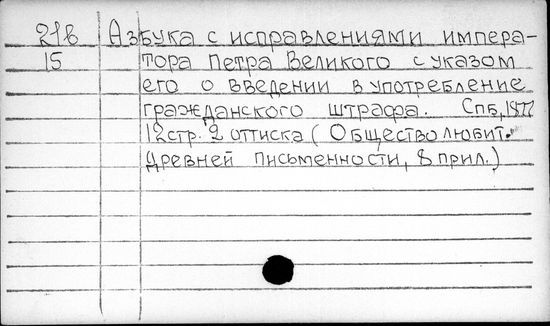 21в Азбука с исправлениями импера-
15 тора Петра Великого с указом
его о введении в употребление
гражданского штрафа. Спб, 1877
12стр. 2 оттиска (Общество любит.
древней письменности, 8 прил.)